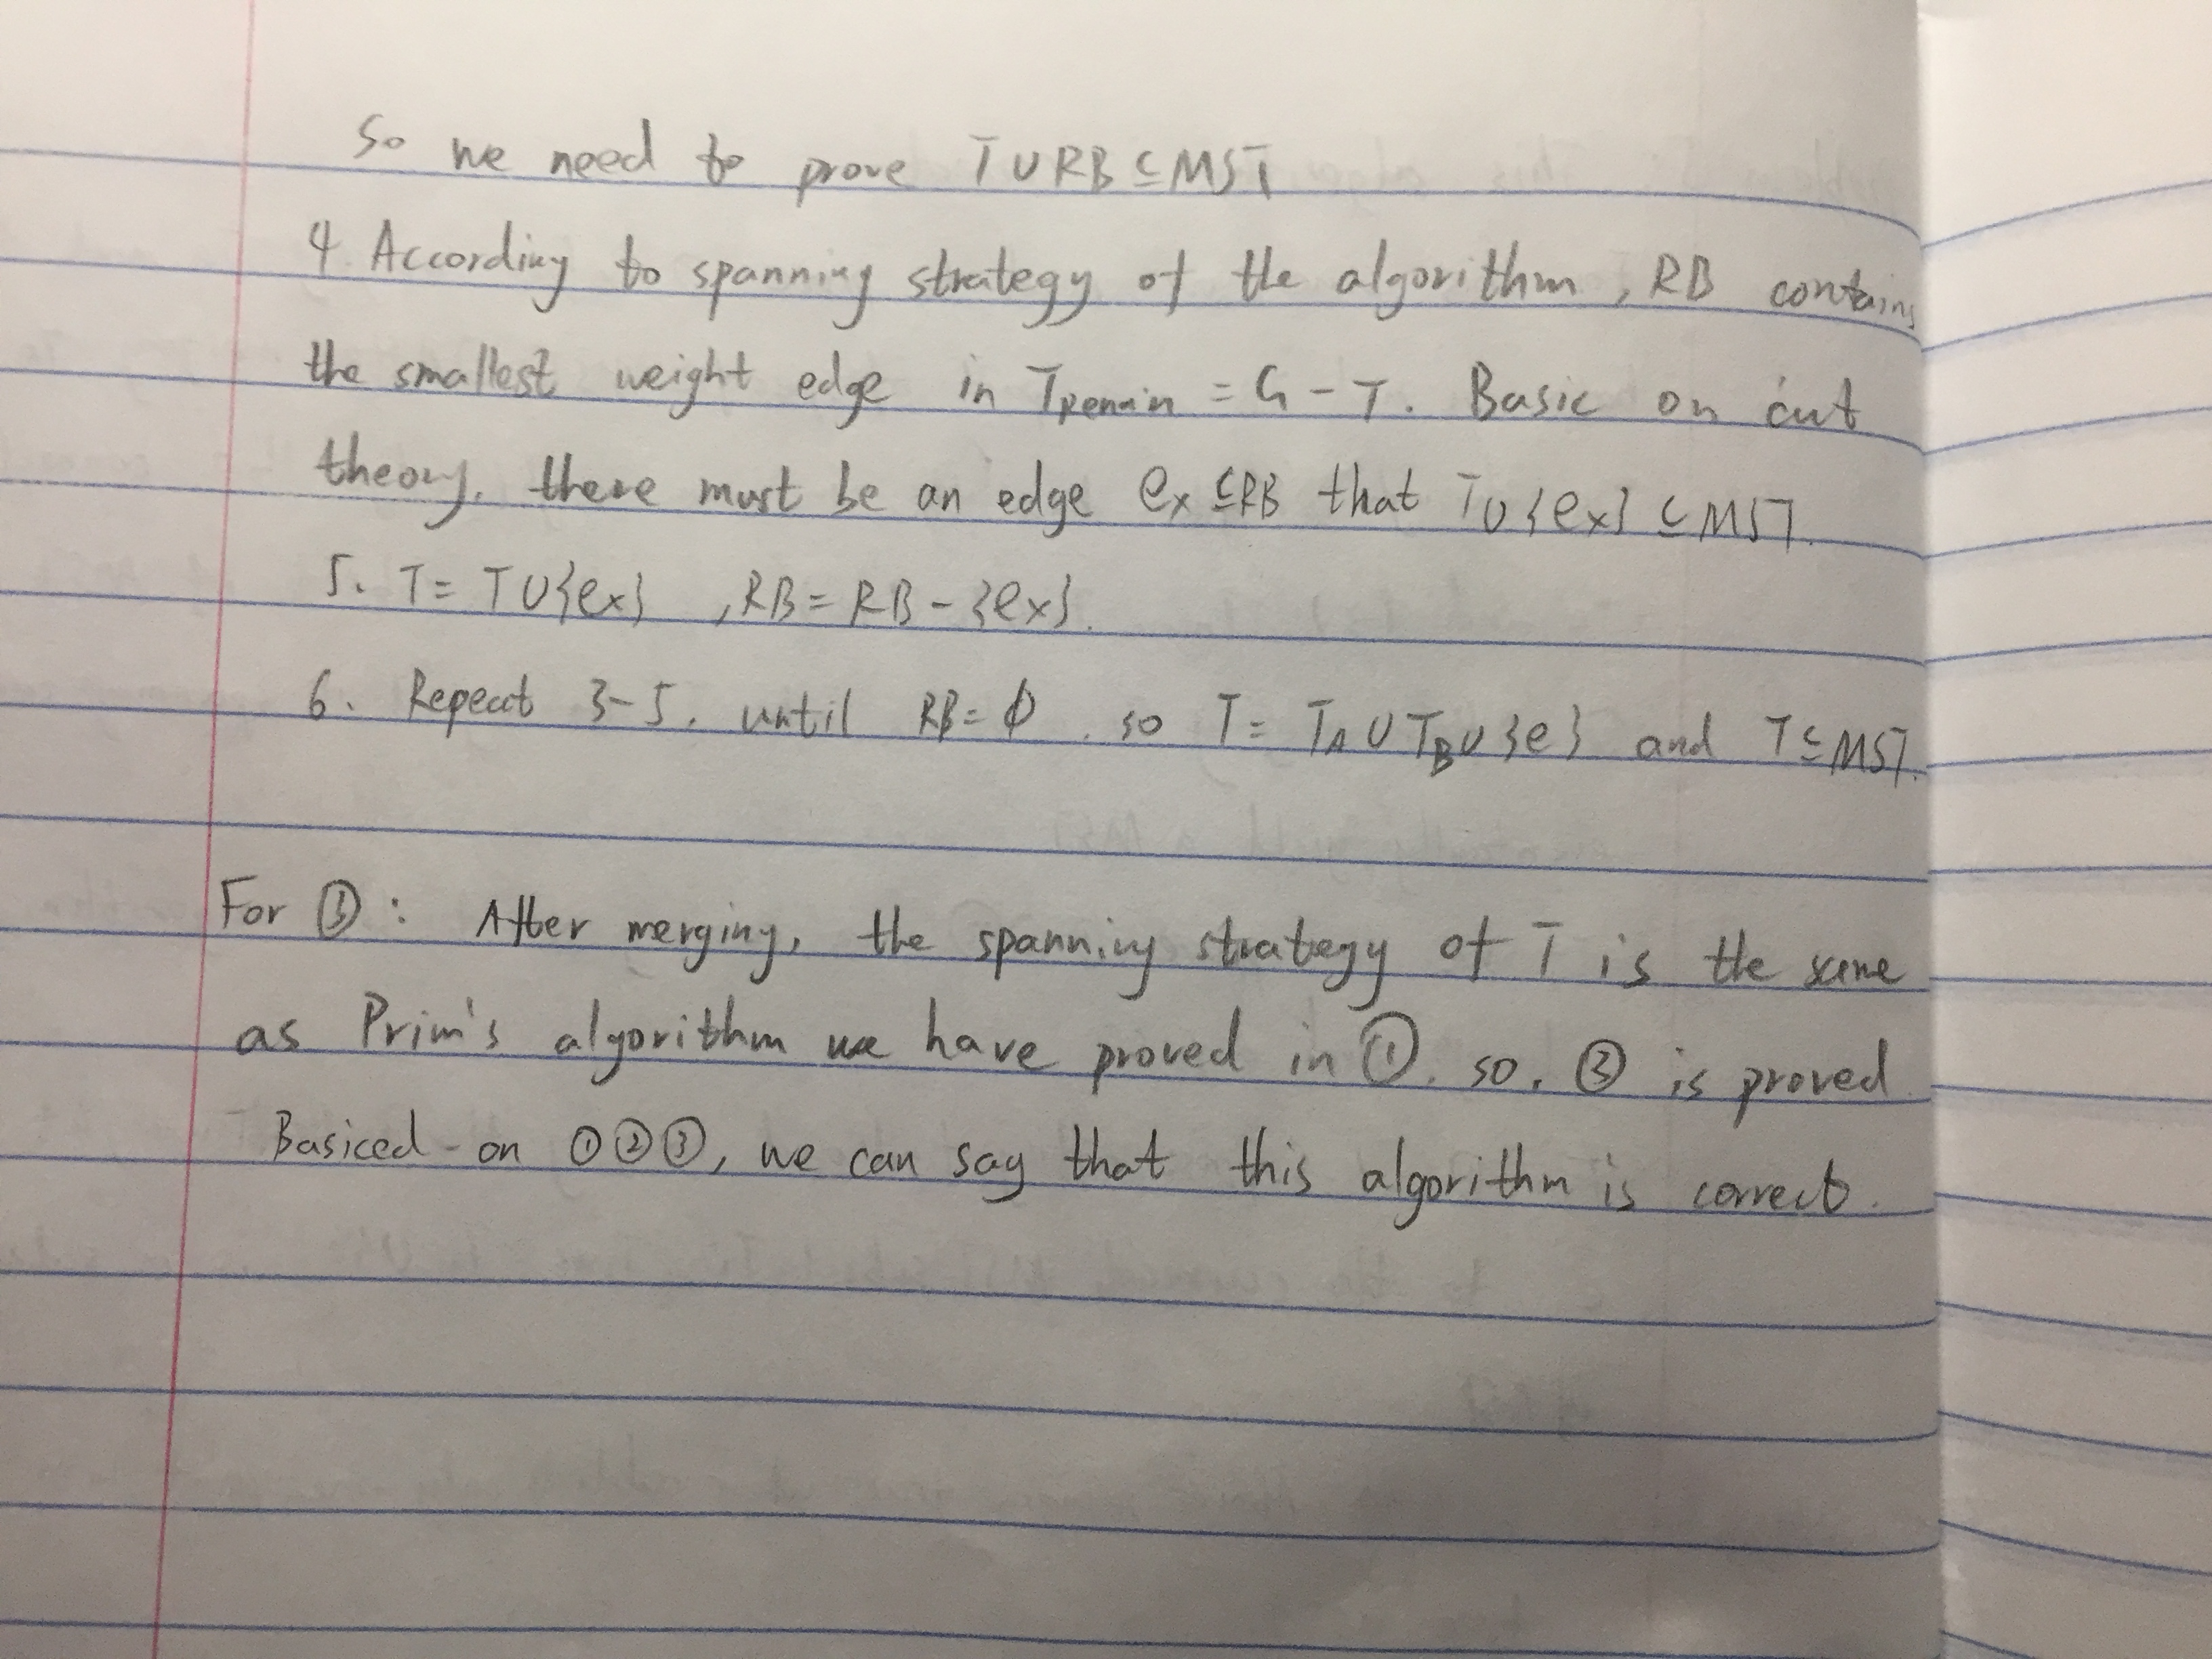 So we need to prove T∪RB⊆MST
4. According to spanning strategy of the algorithm, RB contains
the smallest weight edge in TRemain = G - T. Basic on cut
theory, there must be an edge ex ⊆RB that T∪{ex} ⊆ MST.
5. T= T∪{ex} , RB= RB-{ex}.
6. Repeat 3-5, until RB=∅. so T= TA∪TB∪{e} and T⊆MST.
For ③: After merging, the spanning strategy of T is the same
as Prim's algorithm we have proved in ①. so, ③ is proved
Basiced on ①②③, we can say that this algorithm is correct.